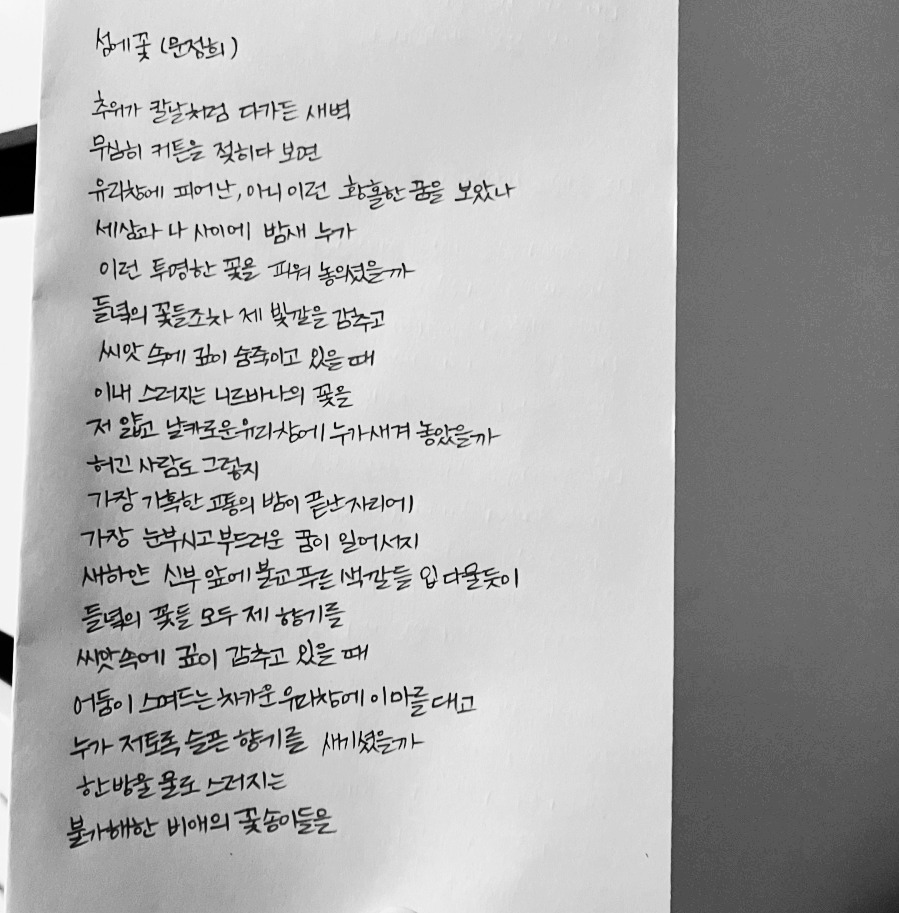 성에꽃 (문정희)
추위가 칼날처럼 다가든 새벽
무심히 커튼을 젖히다 보면
유리창에 피어난, 아니 이런 황홀한 꿈을 보았나
세상과 나 사이에 밤새 누가
이런 투명한 꽃을 피워 놓으셨을까
들녘의 꽃들조차 제 빛깔을 감추고
씨앗 속에 깊이 숨죽이고 있을 때
이내 스러지는 니르바나의 꽃을
저 얇고 날카로운 유리창에 누가 새겨 놓았을까
허긴 사람도 그렇지
가장 가혹한 고통의 밤이 끝난 자리에
가장 눈부시고 부드러운 꿈이 일어서지
새하얀 신부 앞에 붉고 푸른 색깔들 입 다물듯이
들녘의 꽃들 모두 제 향기를
씨앗 속에 깊이 감추고 있을 때
어둠이 스며드는 차가운 유리창에 이마를 대고
누가 저토록 슬픈 향기를 새기셨을까
한 방울 물로 스러지는
불가해한 비애의 꽃송이들을